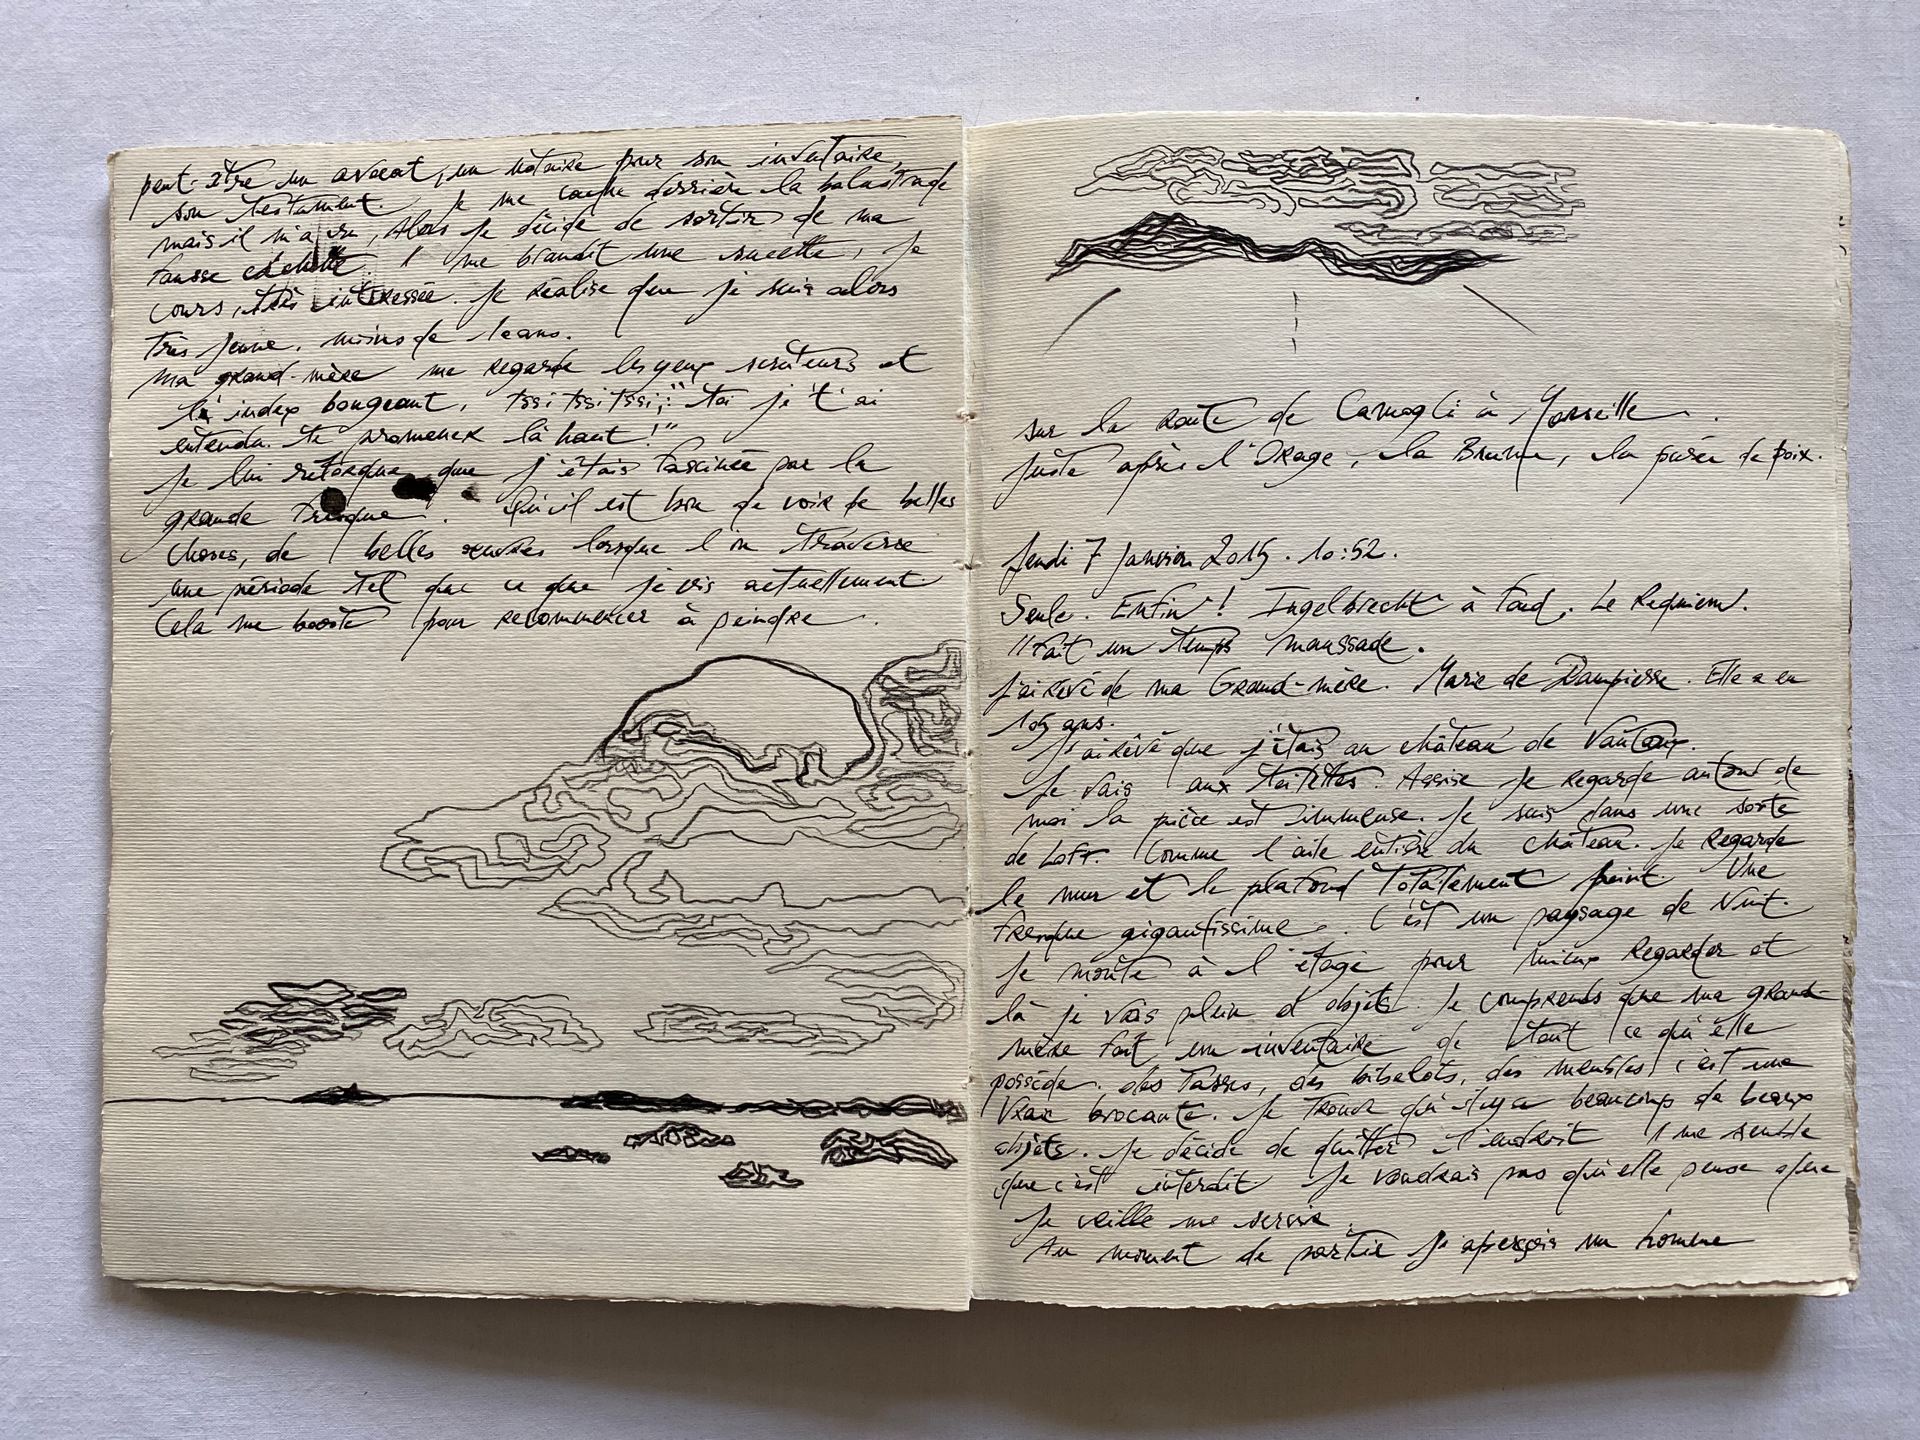 peut-être un avocat, un notaire pour son inventaire,
son testament. Je me cache derrière la balustrade
mais il m'a vu, Alors je décide de sortir de ma
fausse cachette. Il me brandit une sucette, je
cours, très intéressée. Je Réalise que je suis alors
Très jeune. moins de 10 ans.
Ma grand-mère me regarde les yeux scruteurs et
l'index bougeant, Tssi tssi tssi, "Toi je t'ai
entendu te promener là haut!"
Je lui rétorque que j'étais fascinée par la
grande Fresque. Qu'il est bon de voir de belles
choses, de belles œuvres lorsque l'on traverse
une période tel que ce que je vis actuellement.
Cela me booste pour recommencer à peindre.
sur la route de Camogli à Marseille.
juste après l'Orage, la Brume, la purée de poix.
Jeudi 7 Janvier 2015. 10:52.
Seule. Enfin! Ingelbrecht à fond, Le Requiem.
Il fait un temps maussade.
J'ai Rêvé de ma Grand-mère. Marie de Dampierre. Elle a eu
105 ans.
J'ai Rêvé que j'étais au château de Vantoux.
Je vais aux toilettes. Assise je regarde autour de
moi la pièce est immense. Je suis dans une sorte
de Loft. Comme l'aile entière du château. Je Regarde
le mur et le plafond Totalement peint. Une
Fresque gigantissime. C'est un paysage de Nuit.
Je monte à l'étage pour mieux Regarder et
là je vois plein d'objets. Je comprends que ma grand-
mère fait un inventaire de tout ce qu'elle
possède. des Tasses, des bibelots, des meubles, c'est une
Vraie brocante. Je Trouve qu'il y a beaucoup de beaux
objets. Je décide de quitter l'endroit Il me semble
que c'est interdit. Je voudrais pas qu'elle pense que
je veille me servir.
Au moment de partir j'aperçois un homme